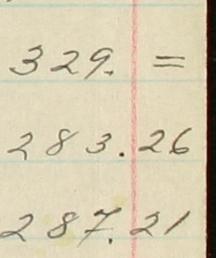 329. =
283.26
287.21